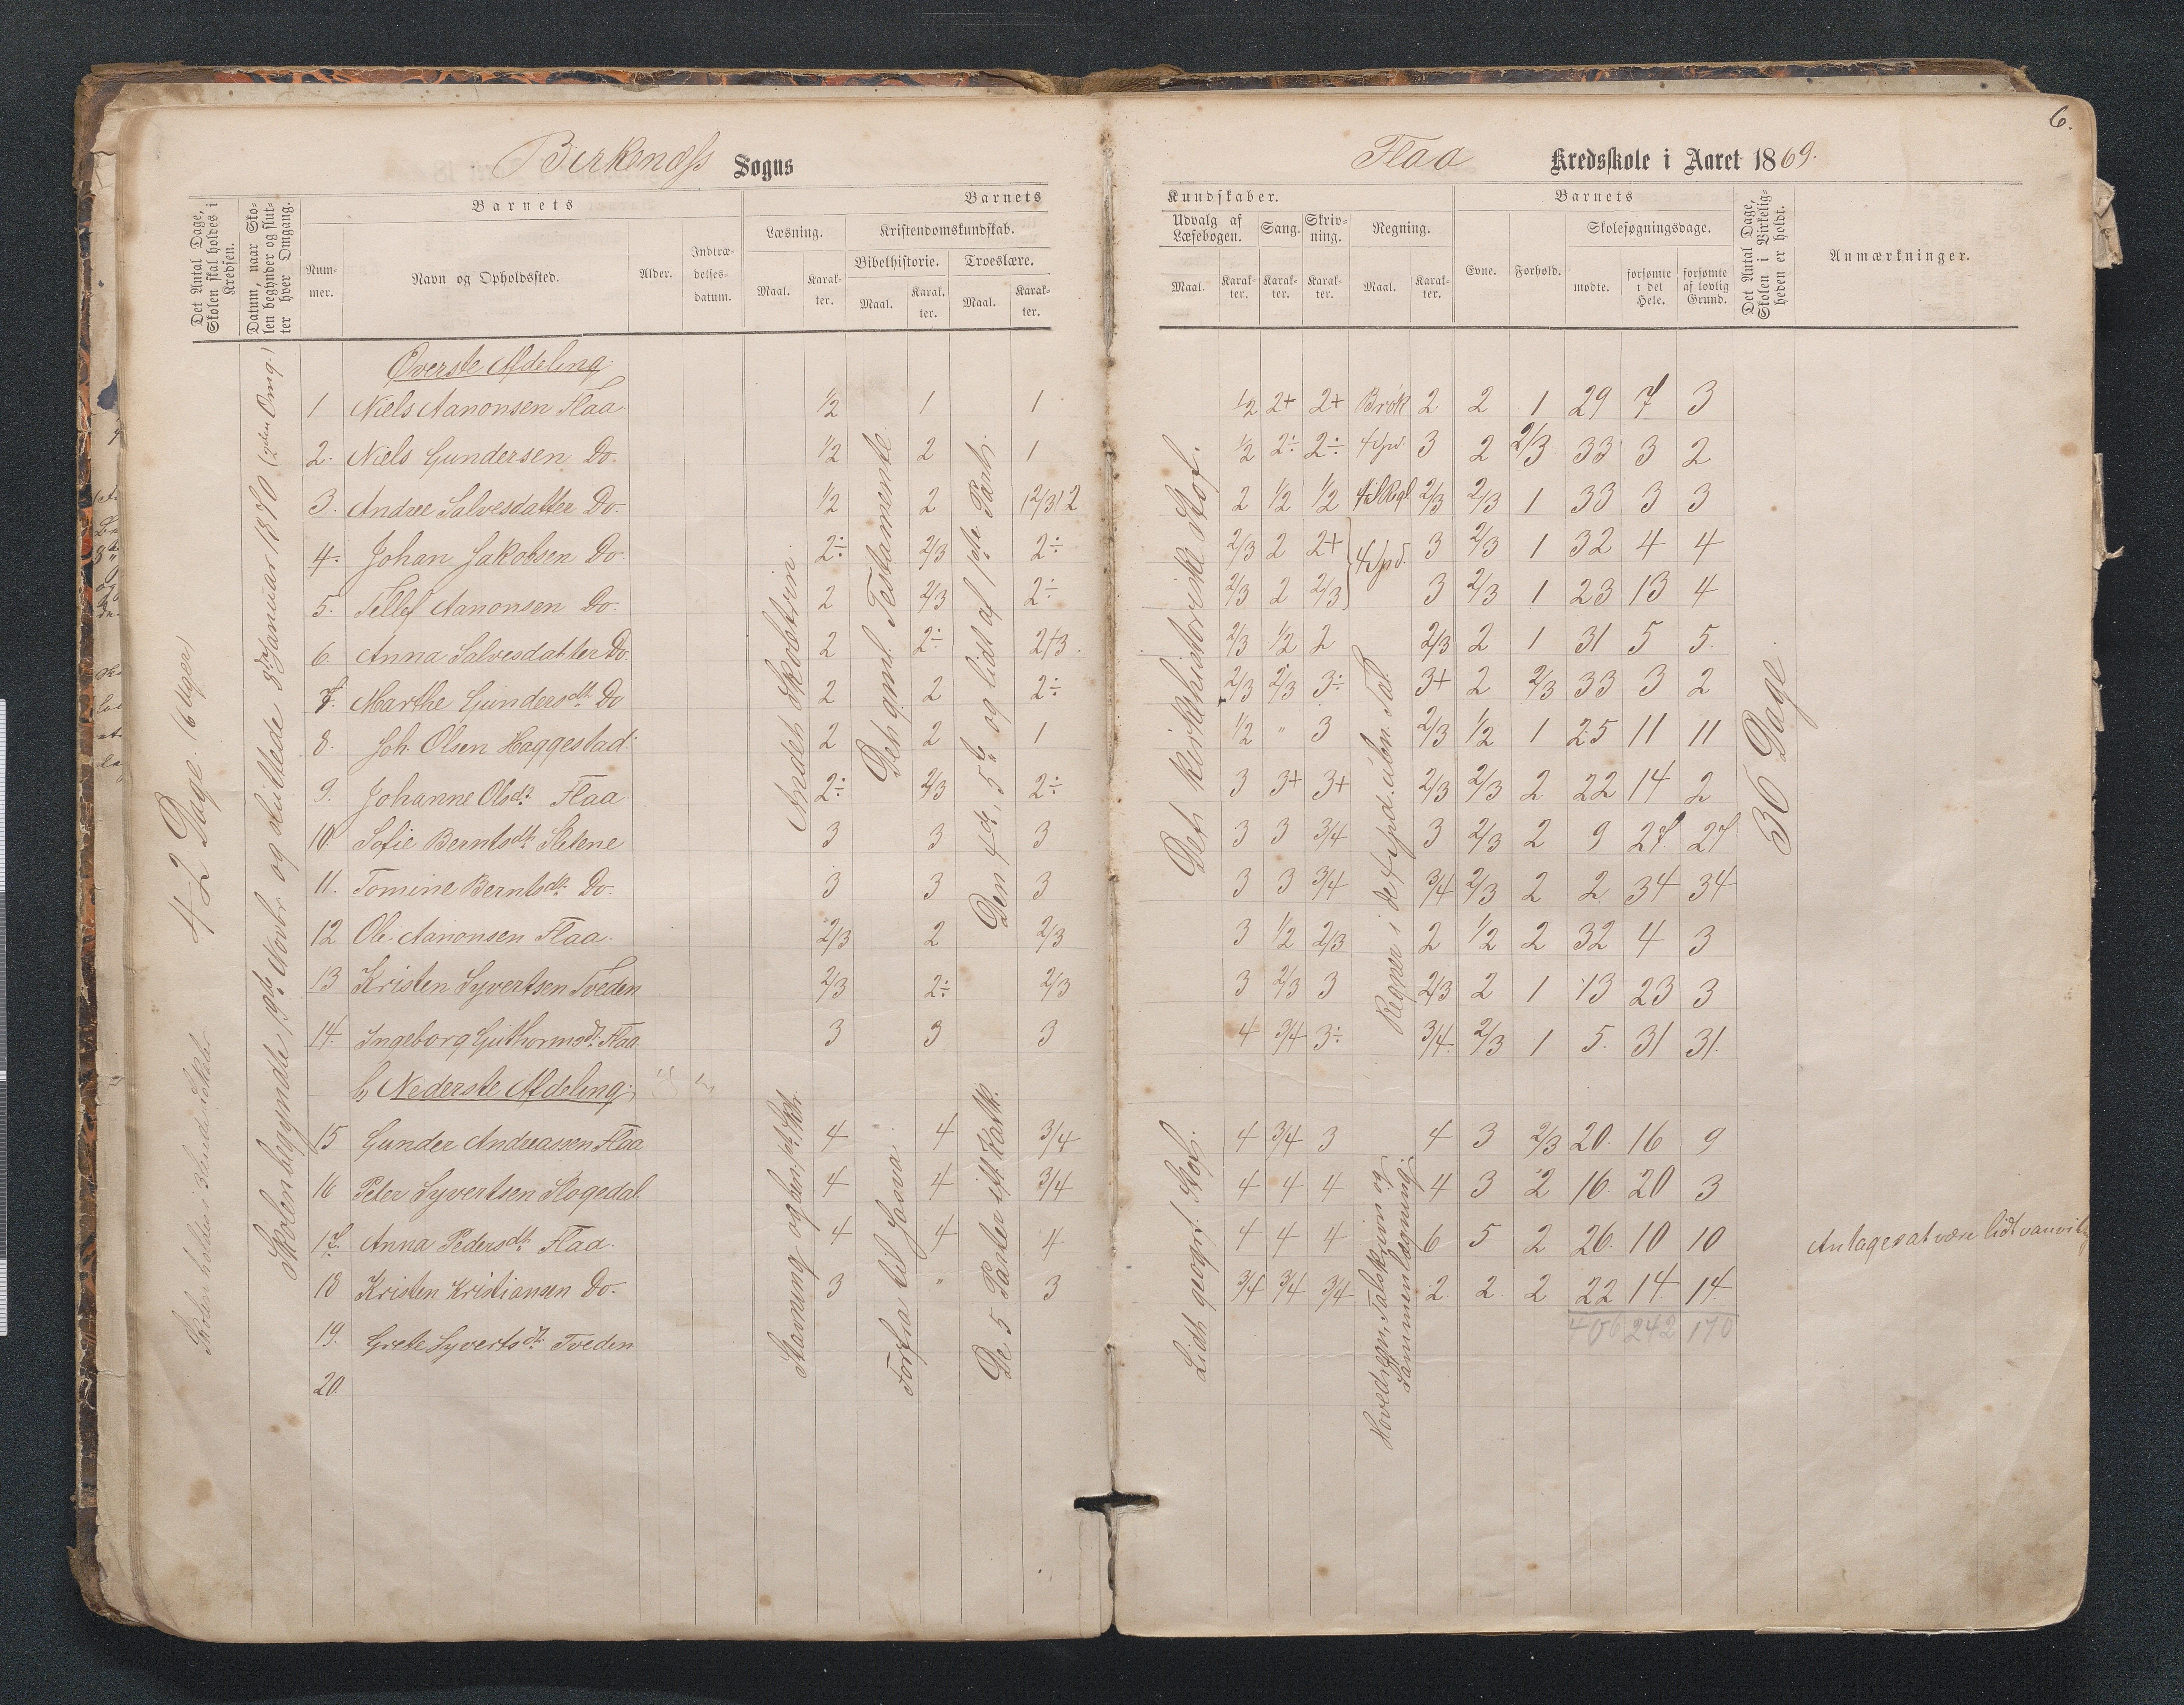 6.
Birkenæss Sogns
Flaa Kredsskole i Aaret 1869.
Det Antal Dage, Skolen skal holdes i Kredsen.
Datum, naar Skolen begynder og slutter hver Omgang.
Barnets
Nummer.
Navn og Opholdssted.
Alder.
Indtrædelsesdatum.
Barnets
Læsning.
Maal.
Karakter.
Kristendomskundskab.
Bibelhistorie.
Maal.
Karakter.
Troeslære.
Maal.
Karakter.
Kundskaber.
Udvalg af Læsebogen.
Maal.
Karakter.
Sang.
Karakter.
Skrivning.
Karakter.
Regning.
Maal.
Karakter.
Barnets
Evne.
Forhold.
Skolesøgningsdage.
mødte.
forsømte i det Hele.
forsømte af lovlig Grund.
Det Antal Dage, Skolen i Virkeligheden er holdt.
Anmærkninger.
42 Dage. (6 Uger)
Skolen begyndte 19de Novbr og sluttede 8de Januar 1870 (2den Omg.)
Øverste Afdeling.
1 Niels Aanonsen Flaa 1/2 1 1 1/2 2+ 2+ Brök 2 2 1 29 7 3
2. Niels Gundersen Do. 1/2 2 1 1/2 2÷ 2÷ 4 Spd. 3 2 2/3 33 3 2
3. Andree Salvesdatter Do. 1/2 2 (2/3) 2 2 1/2 1/2 2/3 2/3 1 33 3 3
4. Johan Jakobsen Do. 2÷ 2/3 2÷ 2/3 2 2+ 4 Spd. 3 2/3 1 32 4 4
5. Tellef Aanonsen Do. 2 2/3 2÷ 2/3 2 2/3 3 2/3 1 23 13 4
6. Anna Salvesdatter Do. 2 2÷ 2/3. 2/3 1/2 2 2/3 2 1 31 5 5.
7. Marthe Gundersdt. Do 2 2 2÷ 2/3 2/3 3÷ 3+ 2 2/3 33 3 2
8. Joh. Olsen Haggestad 2 2 1 1/2 " 3 2/3 1/2 1 25 11 11
9. Johanne Olsdt. Flaa 2÷ 2/3 2÷ 3 3+ 3+ 2/3 2/3 2 22 14 2
10. Sofie Berntsdt. Sletene 3 3 3 3 3 3/4 3 2/3 2 9 27 27
11. Tomine Berntsdt. Do. 3 3 3 3 3 3/4 3/4 2/3 2 2 34 34
12 Ole Aanonsen Flaa. 2/3 2 2/3 3 1/2 2/3 2 1/2 2 32 4 3
13 Kristen Syvertsen Tveden 2/3 2÷ 2/3 3 2/3 3 2/3 2 1 13 23 3
14. Ingeborg Guthormsdt. Flaa 3 3 3 4 3/4 3÷ 3/4. 2/3 1 5. 31 31.
Andet Skoletrin.
Det gaml. Testamente
Den 4de, 5te og lidt af 1ste Part.
Det kirkehistoriske Stof.
Regner i de 4 Spd. ubn. Tal
36 Dage.
b, Nederste Afdeling.
15 Gunder Andreassen Flaa 4 4 3/4 4 3/4 3 4 3 2/3 20. 16 9
16 Peter Syvertsen Skogedal 4 4 3/4 4 4 4 4 3 2 16. 20 3
17. Anna Pedersdt. Flaa. 4 4 4 4 4 4 6 5 2 26. 10 10 Antages at være lidt vanvittig
18 Kristen Kristiansen Do. 3 " 3 3/4 3/4 3/4 2. 2. 2 22 14 14.
406 242 170
19. Grete Syvertsdt. Tveden
20.
Forfra til Josva.
De 5 Parter eft. Katk.
Lidt geogr. Stof.
Hovedregn, Talskrivn og Sammenlægning.